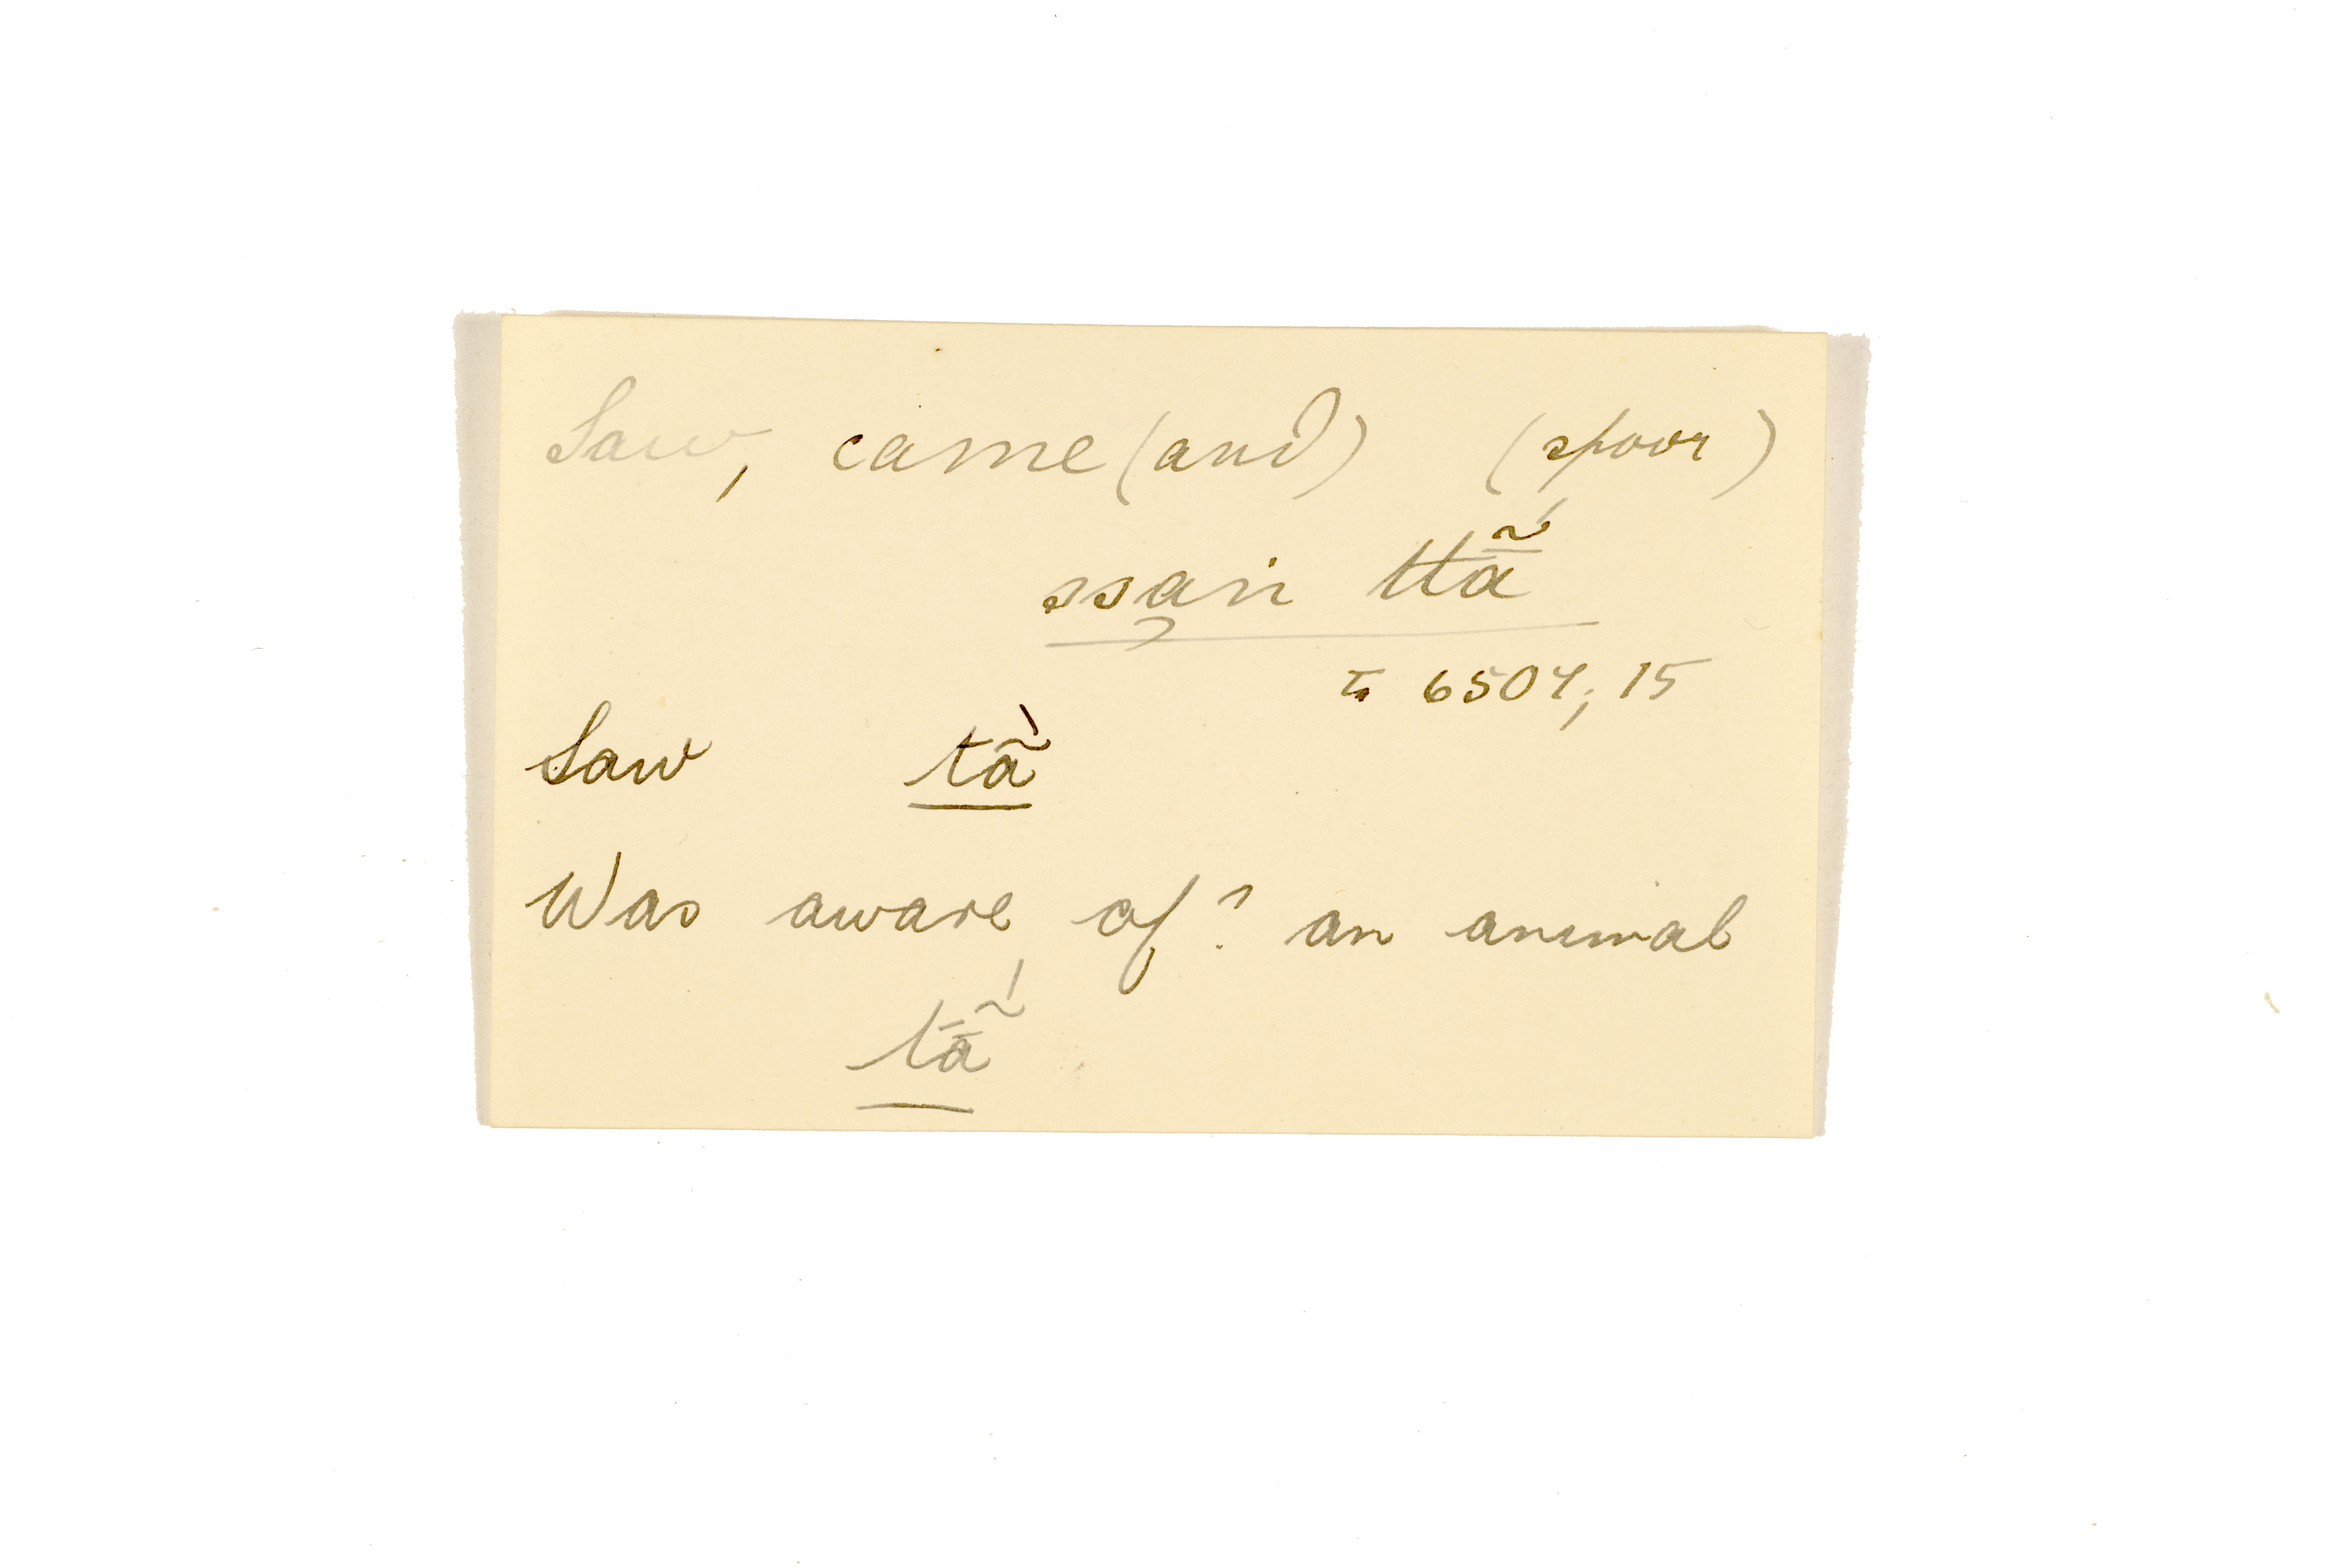 Saw, came (and) (spoor)
ssan ttā̃́
6507, 15
Saw tã̀
Was aware of? an animal
tā̃́